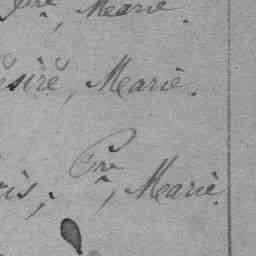 Marie.
ésiré, Marie.
ois, Pre, Marie.